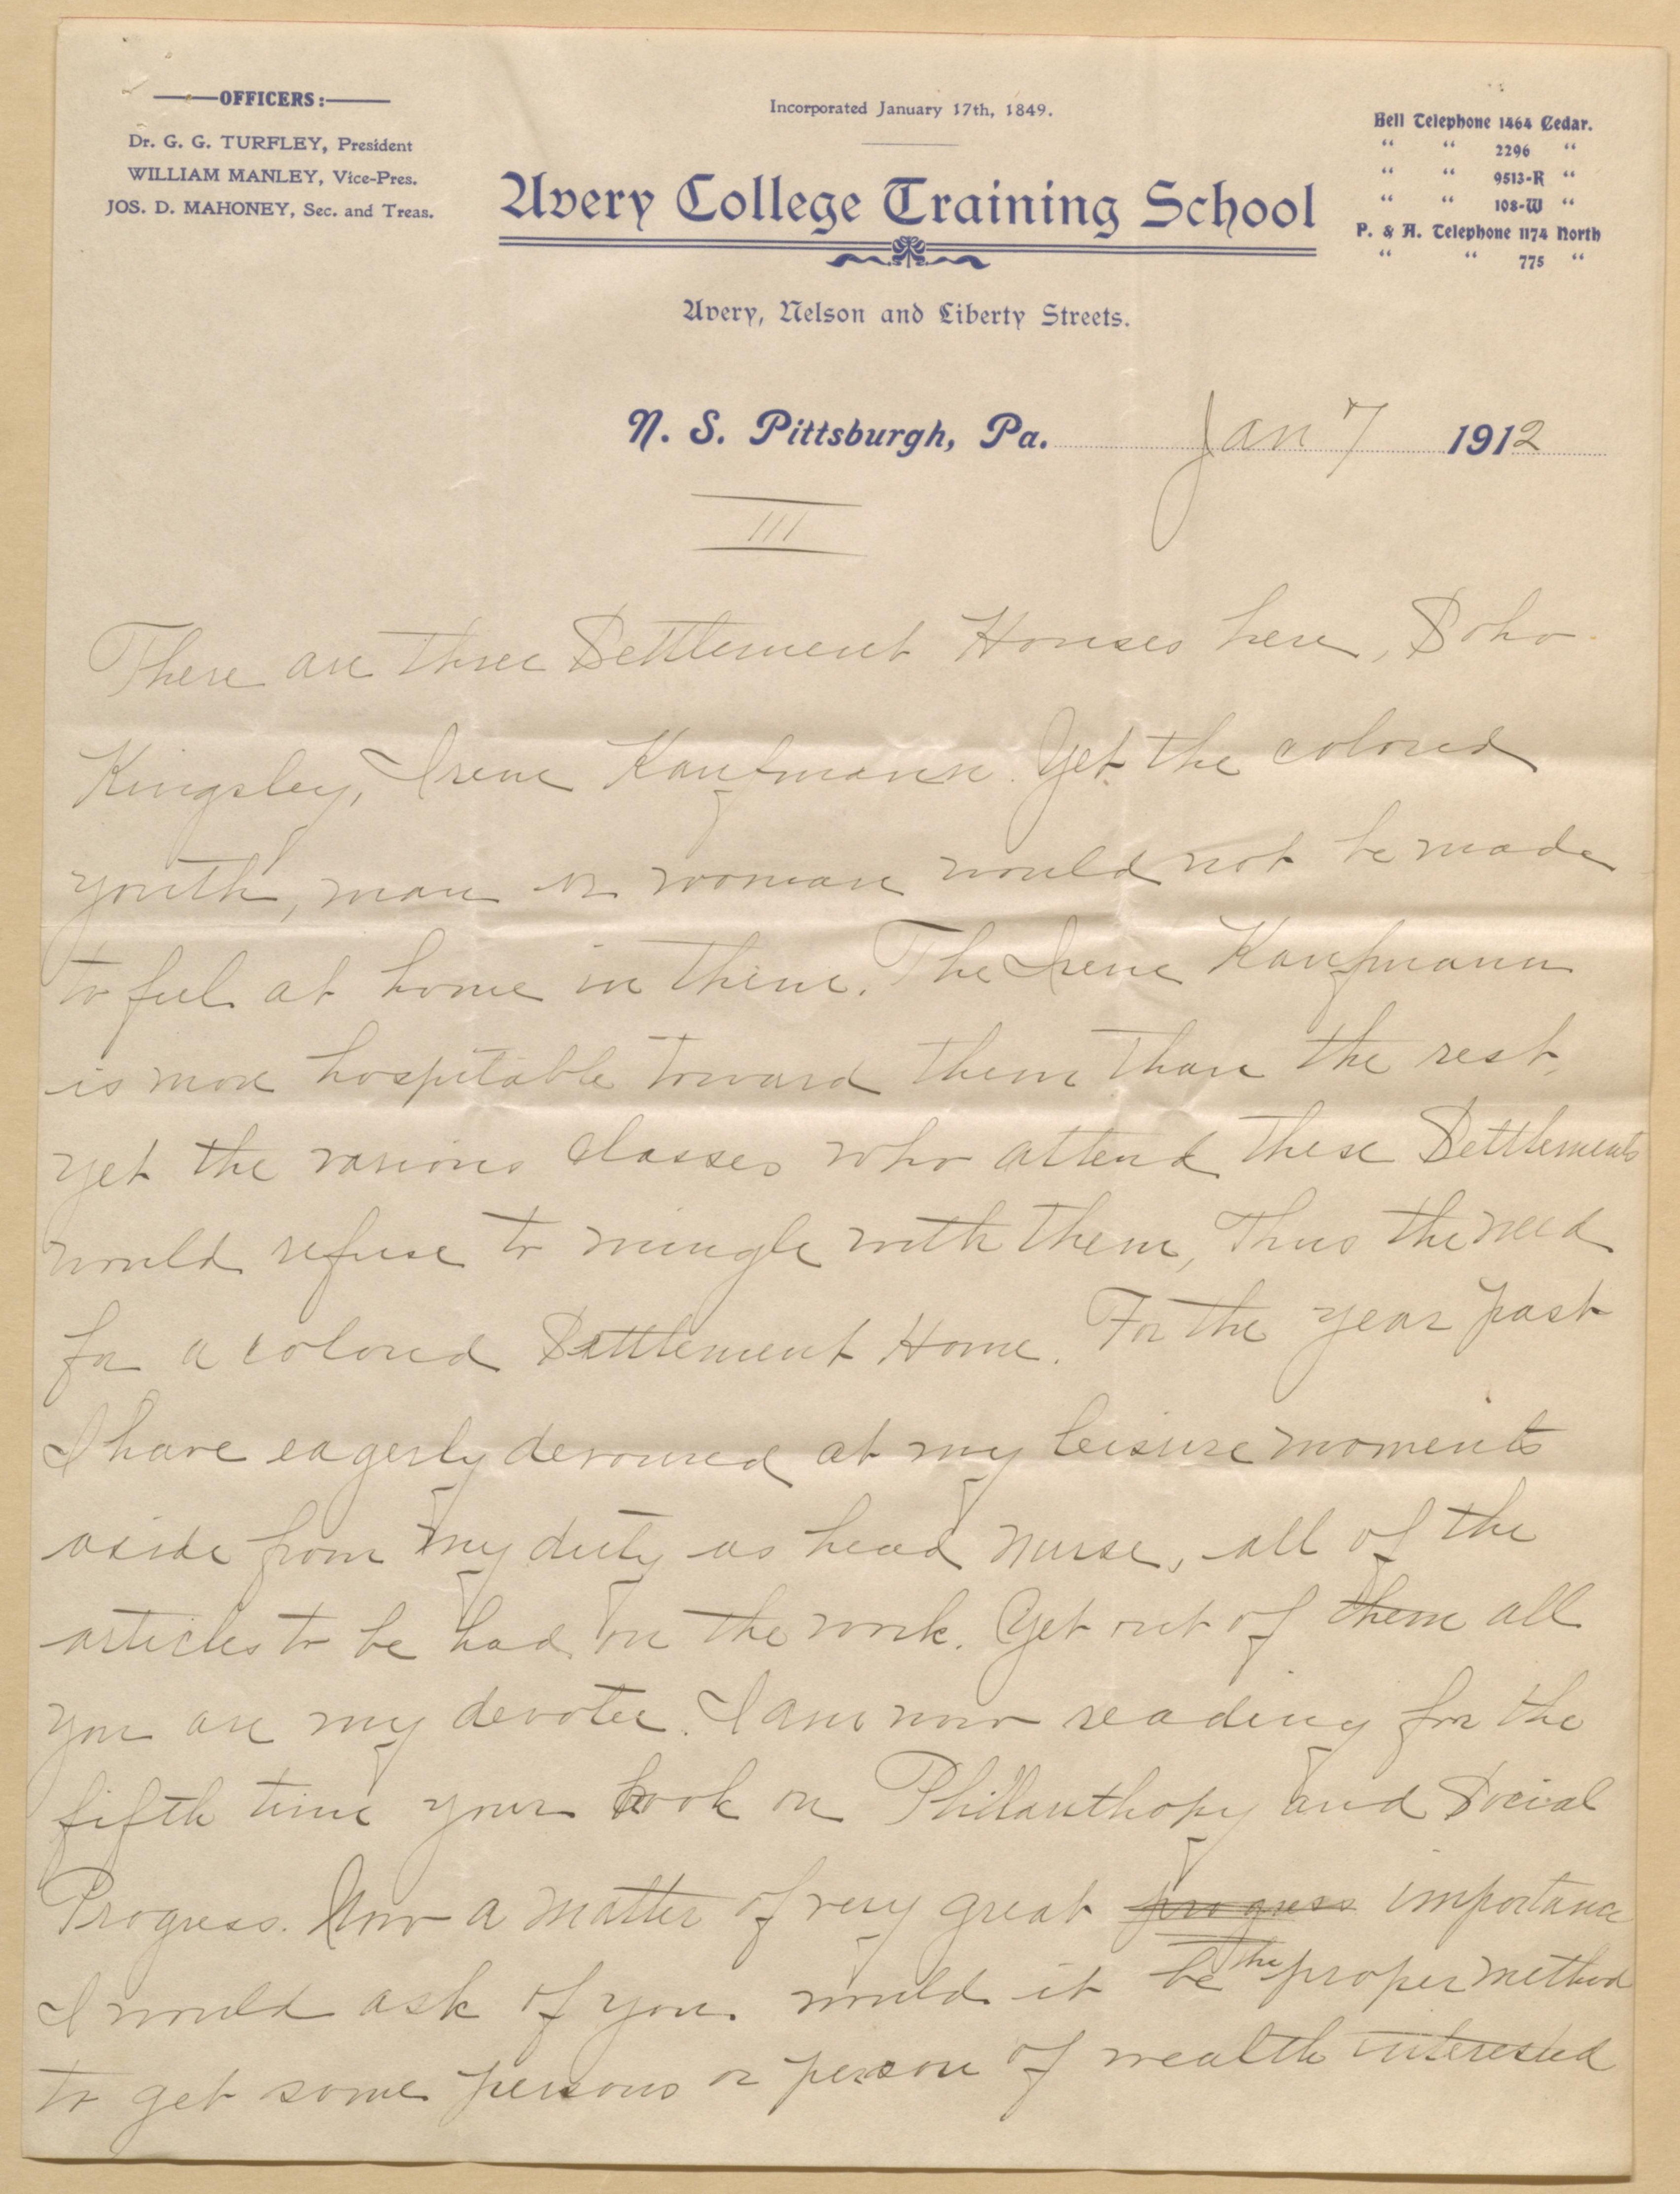 OFFICERS:
Dr. G. G. TURFLEY, President
WILLIAM MANLEY, Vice-Pres.
JOS. D. MAHONEY, Sec. and Treas.
Incorporated January 17th, 1849.
Avery College Training School
Avery, Nelson and Liberty Streets.
Bell Telephone 1464 Cedar.
“ “ 2296 “
“ “ 9513-R “
“ “ 108-W “
P. & A. Telephone 1174 North
“ “ 775 “
N. S. Pittsburgh, Pa. Jan 7 1912
III
There are three Settlement Houses here, Soho
Kingsley, Irene Kaufmann. Yet the colored
youth, man or woman would not be made
to feel at home in them. The Irene Kaufmann
is more hospitable toward them than the rest,
yet the various classes who attend these Settlements
would refuse to mingle with them, Thus the need
for a colored Settlement Home. For the year past
I have eagerly devoured at my leisure moments
aside from my duty as head nurse, all of the
articles to be had on the work. Yet out of them all
you are my devotee. I am now reading for the
fifth time your book on Philanthopy and Social
Progress. Now a matter of very great progress importance
I would ask of you. would it be the proper method
to get some persons or person of wealth interested